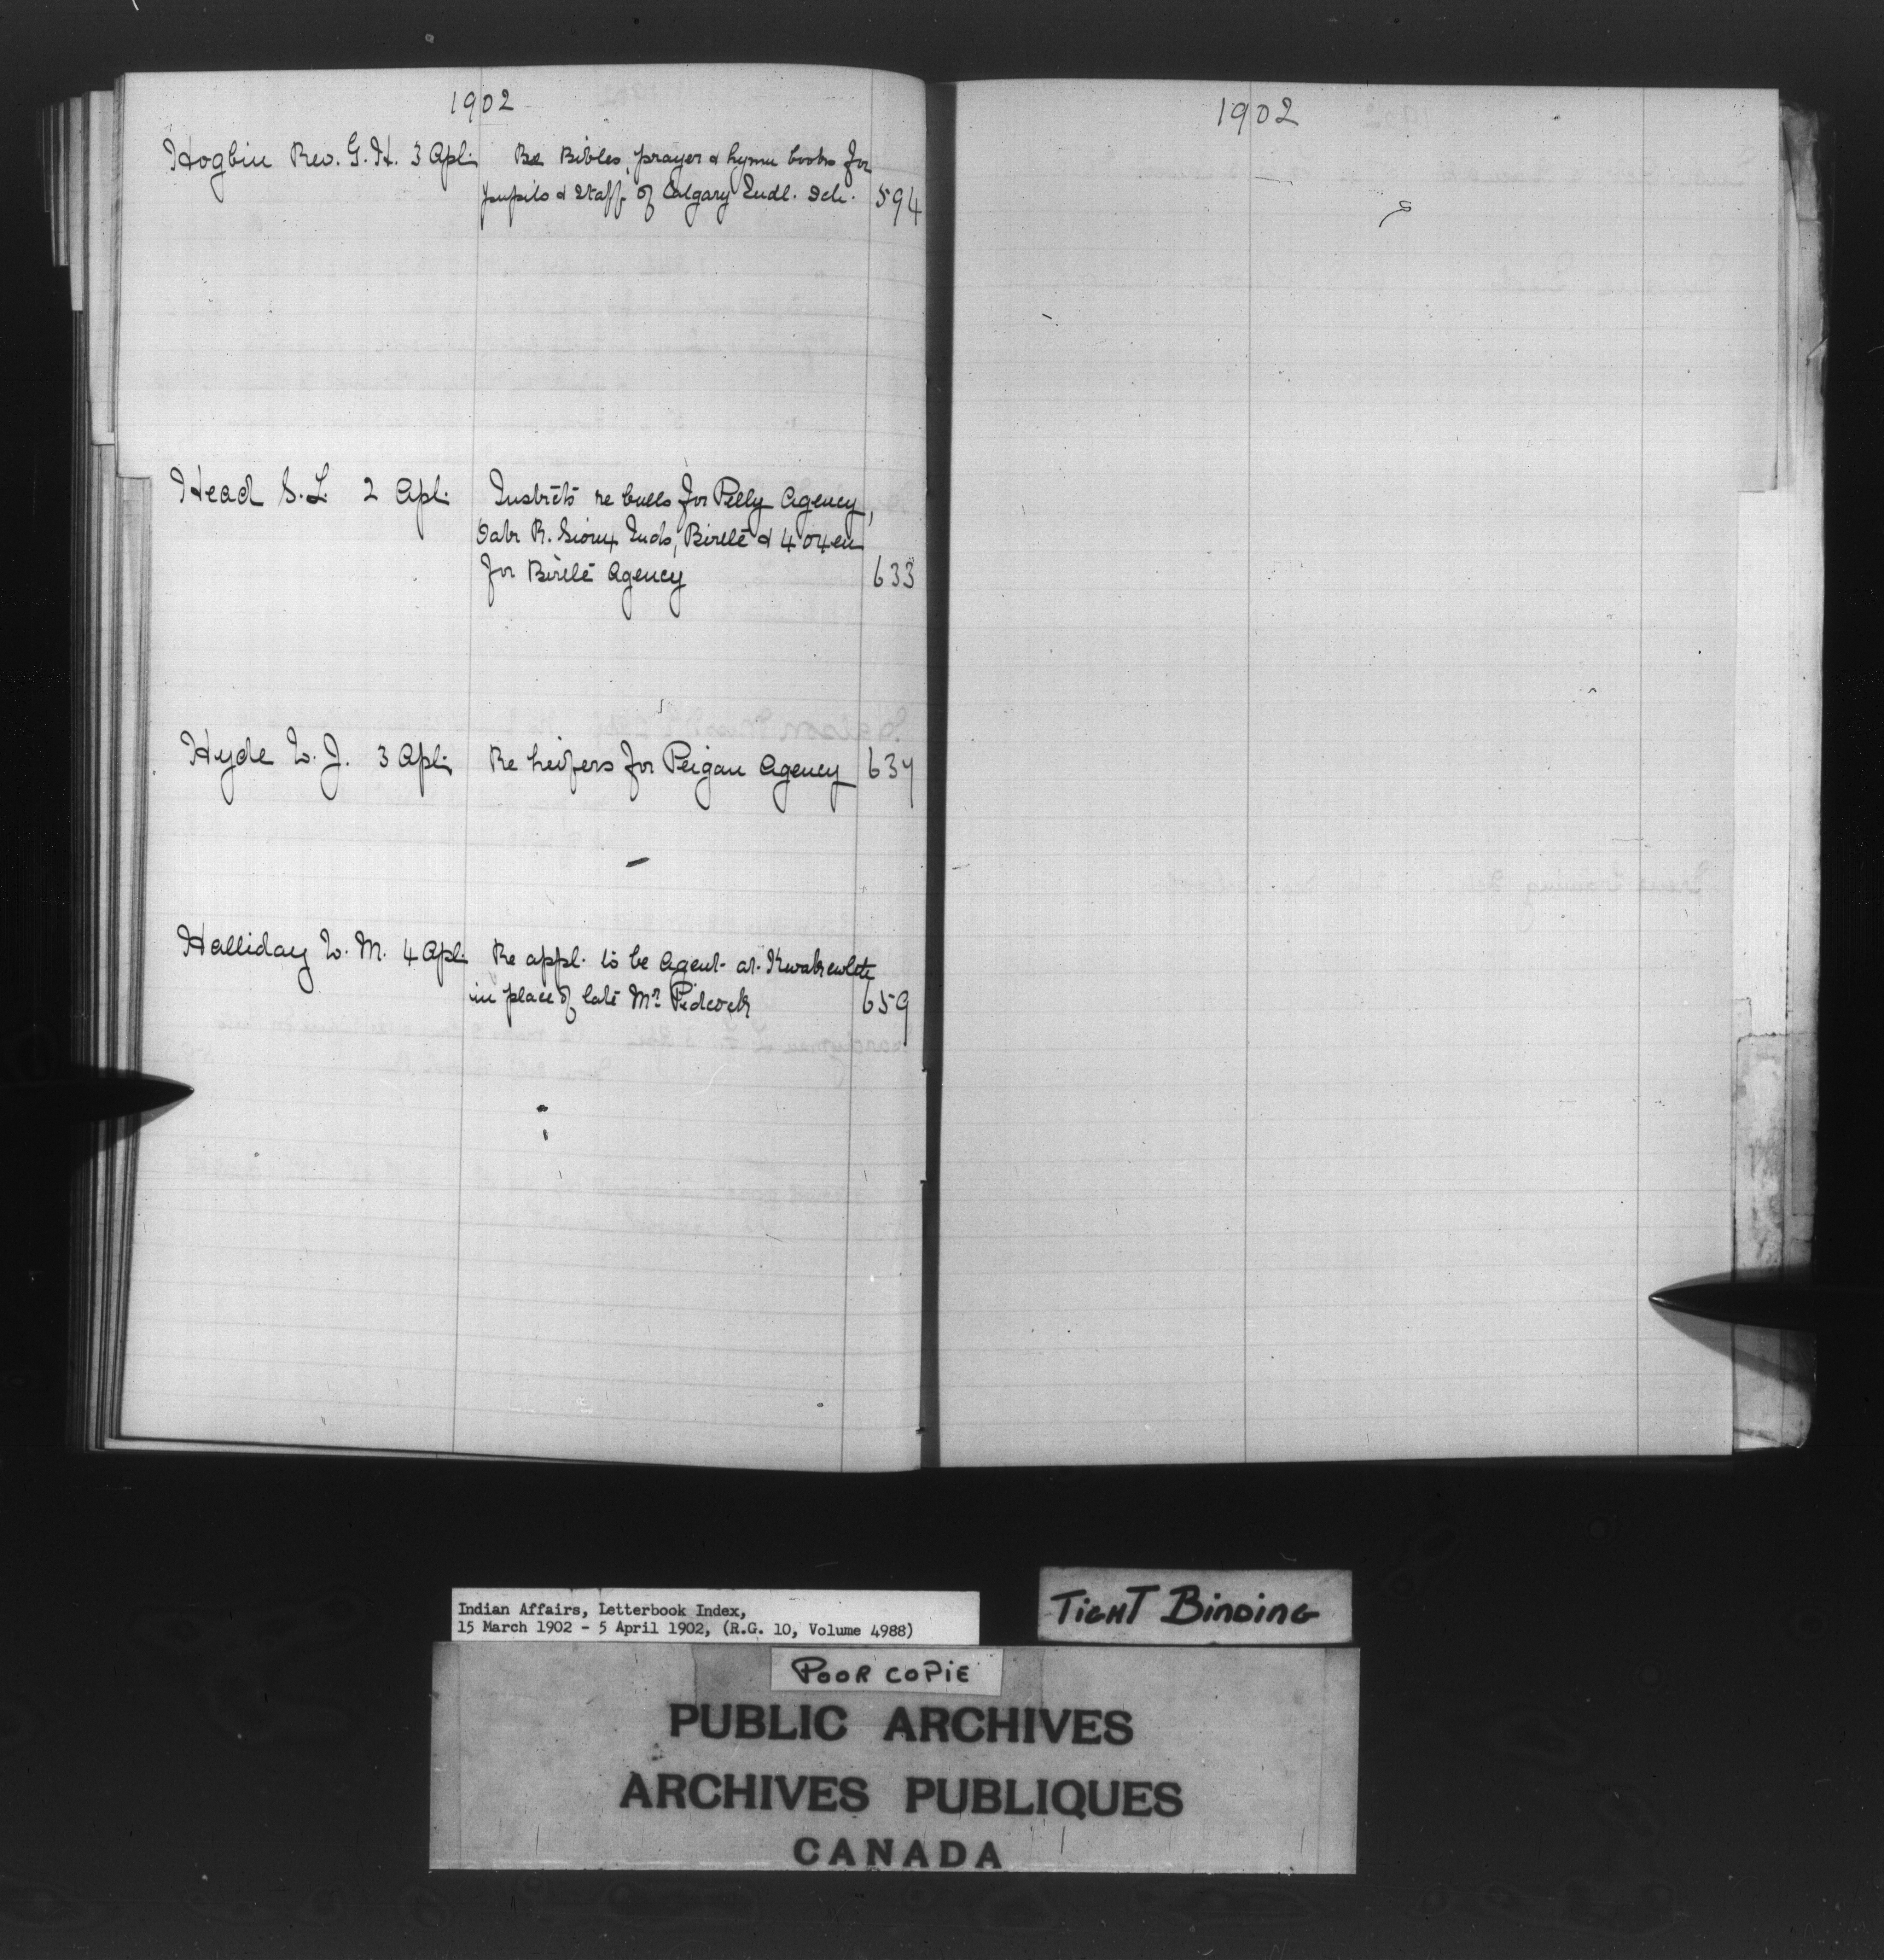 1902
Hogbin Rev. G. H. 3 Apl. Re Bibles, prayer & hymn books for
pupils & staff of Calgary Indl. Sch. 594
Head S. L. 2 Apl. Instrcts re bulls for Pelly Agency,
Oak R. Sioux Inds, Birtle & 4 oxen
for Birtle Agency 633
Hyde W. J. 3 Apl. Re heifers for Peigan Agency 634
Halliday W. M. 4 Apl. Re appl. to be Agent at Kwakewlth
in place of late Mr. Pidcock 659
1902
Indian Affairs, Letterbook Index,
15 March 1902 - 5 April 1902, (R.G. 10, Volume 4988)
TIGHT BINDING
POOR COPIE
PUBLIC ARCHIVES
ARCHIVES PUBLIQUES
CANADA